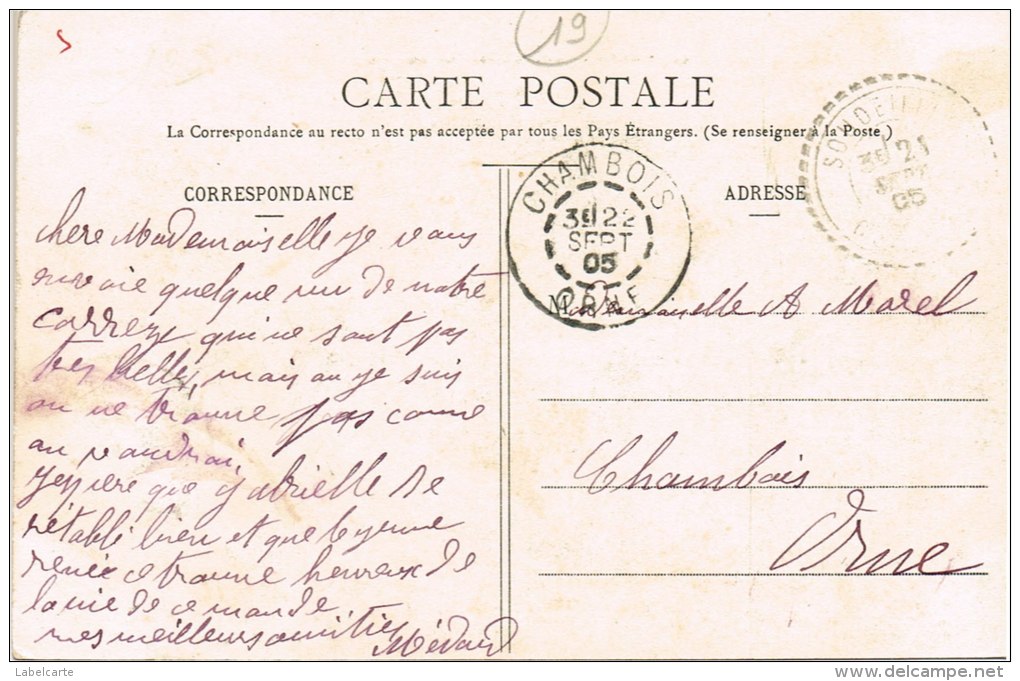 19
CARTE POSTALE
La Correspondance au recto n'est pas acceptée par tous les Pays Étrangers. (Se renseigner à la Poste)
CORRESPONDANCE
ADRESSE
CHAMBOIS
3E 22
SEPT
05
ORNE
21
SEPT
05
chere Mademoiselle je vous
envoie quelque une de notre
Correze qui ne sont pas
tres belles, mais ou je suis
on ne trouve pas come
on voudrai,
j'espere que gabrielle se
retabli bien et que
renée ce trouve heureux de
la vie de ce monde
mes meilleurs amities Médard
Mademoiselle A Morel
Chambois
Orne
Labelcarte
www.delcampe.net